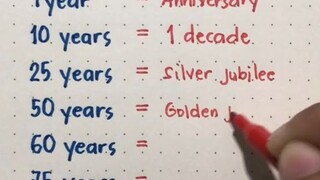 1 year = Anniversary
10 years = 1 decade
25 years = Silver jubilee
50 years = Golden
60 years =
75 years